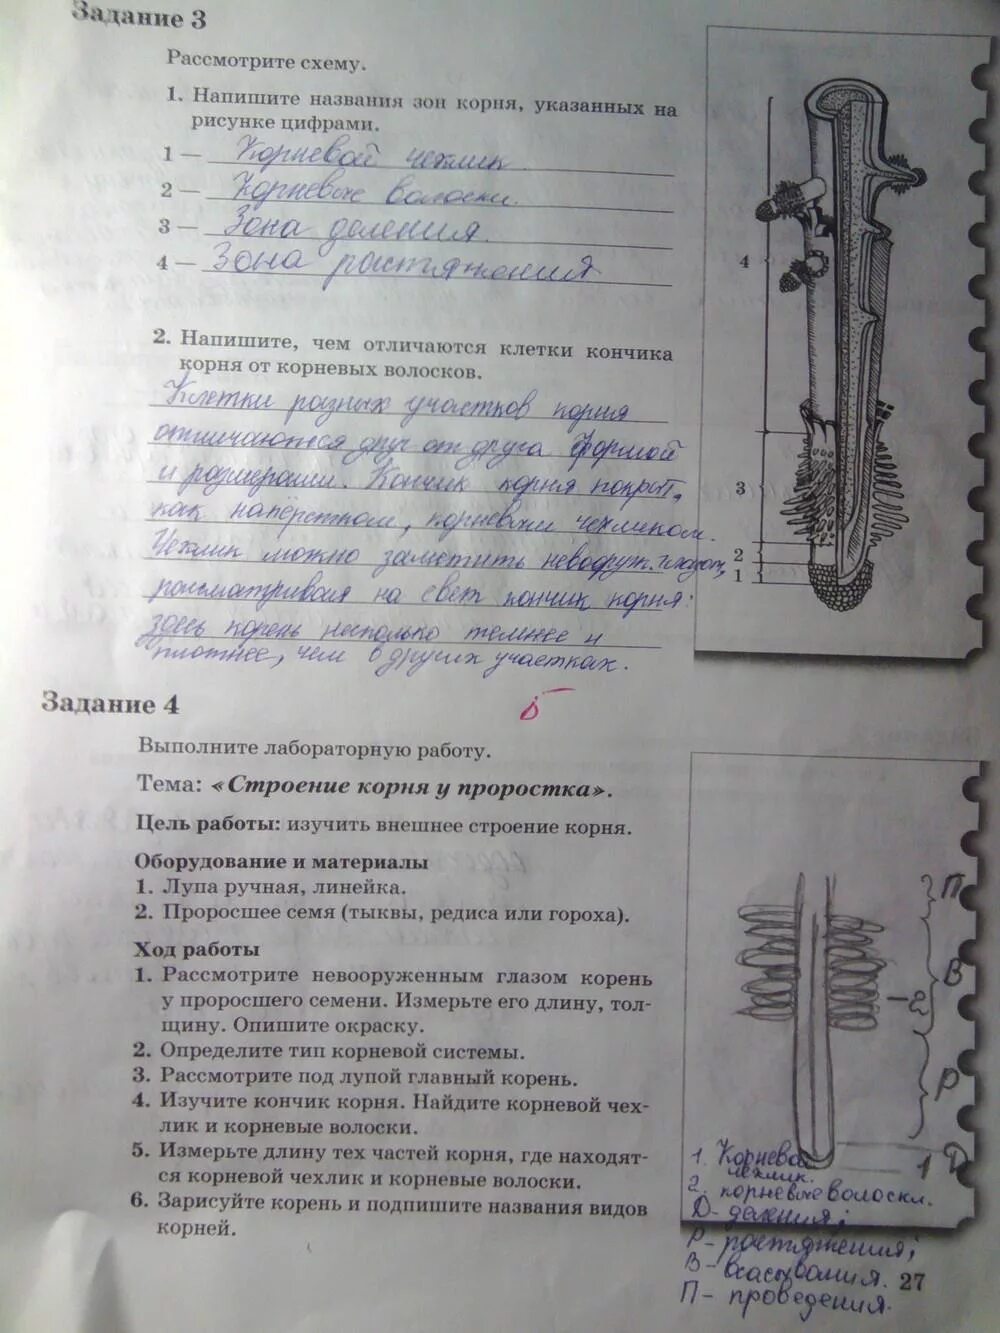 Задание 3
Рассмотрите схему.
1. Напишите названия зон корня, указанных на
рисунке цифрами.
1 — Корневой чехлик
2 — Корневые волоски.
3 — Зона деления.
4 — Зона растяжения
2. Напишите, чем отличаются клетки кончика
корня от корневых волосков.
Клетки разных участков корня
отличаются друг от друга формой
и размерами. Кончик корня покрыт,
как напёрстком, корневым чехликом.
Чехлик можно заметить невооруж. глазом,
рассматривая на свет кончик корня:
здесь корень несколько темнее и
плотнее, чем в других участках.
4
3
2
1
5
Задание 4
Выполните лабораторную работу.
Тема: «Строение корня у проростка».
Цель работы: изучить внешнее строение корня.
Оборудование и материалы
1. Лупа ручная, линейка.
2. Проросшее семя (тыквы, редиса или гороха).
Ход работы
1. Рассмотрите невооруженным глазом корень
у проросшего семени. Измерьте его длину, тол-
щину. Опишите окраску.
2. Определите тип корневой системы.
3. Рассмотрите под лупой главный корень.
4. Изучите кончик корня. Найдите корневой чех-
лик и корневые волоски.
5. Измерьте длину тех частей корня, где находят-
ся корневой чехлик и корневые волоски.
6. Зарисуйте корень и подпишите названия видов
корней.
П
В
2
Р
1 Д
1. Корневой
чехлик.
2. корневые волоски.
Д - деления;
Р - растяжения;
В - всасывания.
П - проведения.
27